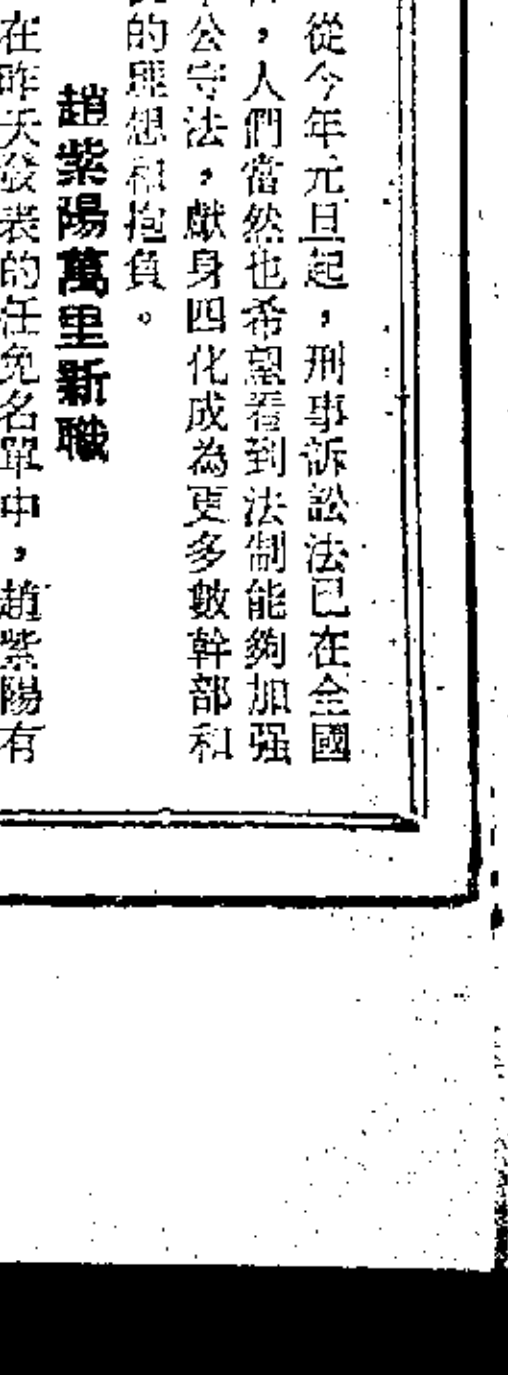 從今年元旦起，刑事訴訟法已在全國
，人們當然也希望看到法制能夠加强
公守法，獻身四化成為更多數幹部和
的理想和抱負。
趙紫陽萬里新職
在昨天發表的任免名單中，趙紫陽有